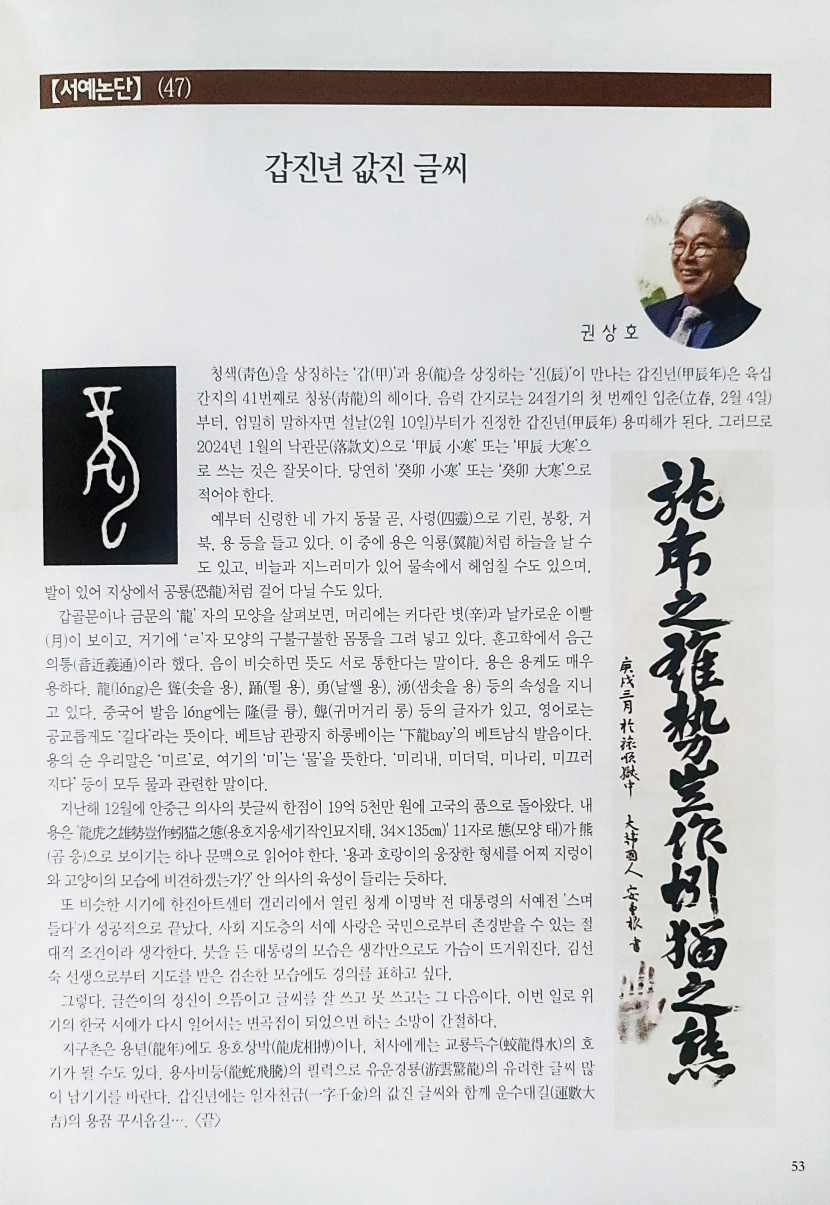 【서예논단】 (47)
갑진년 값진 글씨
권 상 호
청색(靑色)을 상징하는 '갑(甲)'과 용(龍)을 상징하는 '진(辰)'이 만나는 갑진년(甲辰年)은 육십
간지의 41번째로 청룡(靑龍)의 해이다. 음력 간지로는 24절기의 첫 번째인 입춘(立春, 2월 4일)
부터, 엄밀히 말하자면 설날(2월 10일)부터가 진정한 갑진년(甲辰年) 용띠해가 된다. 그러므로
2024년 1월의 낙관문(落款文)으로 '甲辰 小寒' 또는 '甲辰 大寒'으
로 쓰는 것은 잘못이다. 당연히 '癸卯 小寒' 또는 '癸卯 大寒'으로
적어야 한다.
예부터 신령한 네 가지 동물 곧, 사령(四靈)으로 기린, 봉황, 거
북, 용 등을 들고 있다. 이 중에 용은 익룡(翼龍)처럼 하늘을 날 수
도 있고, 비늘과 지느러미가 있어 물속에서 헤엄칠 수도 있으며,
발이 있어 지상에서 공룡(恐龍)처럼 걸어 다닐 수도 있다.
갑골문이나 금문의 '龍' 자의 모양을 살펴보면, 머리에는 커다란 볏(辛)과 날카로운 이빨
(月)이 보이고, 거기에 'ㄹ'자 모양의 구불구불한 몸통을 그려 넣고 있다. 훈고학에서 음근
의통(音近義通)이라 했다. 음이 비슷하면 뜻도 서로 통한다는 말이다. 용은 용케도 매우
용하다. 龍(lóng)은 聳(솟을 용), 踊(뛸 용), 勇(날쌜 용), 湧(샘솟을 용) 등의 속성을 지니
고 있다. 중국어 발음 lóng에는 隆(클 륭), 聾(귀머거리 롱) 등의 글자가 있고, 영어로는
공교롭게도 '길다'라는 뜻이다. 베트남 관광지 하롱베이는 '下龍bay'의 베트남식 발음이다.
용의 순 우리말은 '미르'로, 여기의 '미'는 '물'을 뜻한다. '미리내, 미더덕, 미나리, 미끄러
지다' 등이 모두 물과 관련한 말이다.
지난해 12월에 안중근 의사의 붓글씨 한점이 19억 5천만 원에 고국의 품으로 돌아왔다. 내
용은 '龍虎之雄勢豈作蚓猫之態(용호지웅세기작인묘지태, 34×135㎝)' 11자로 態(모양 태)가 熊
(곰 웅)으로 보이기는 하나 문맥으로 읽어야 한다. '용과 호랑이의 웅장한 형세를 어찌 지렁이
와 고양이의 모습에 비견하겠는가?' 안 의사의 육성이 들리는 듯하다.
또 비슷한 시기에 한전아트센터 갤러리에서 열린 청계 이명박 전 대통령의 서예전 '스며
들다'가 성공적으로 끝났다. 사회 지도층의 서예 사랑은 국민으로부터 존경받을 수 있는 절
대적 조건이라 생각한다. 붓을 든 대통령의 모습은 생각만으로도 가슴이 뜨거워진다. 김선
숙 선생으로부터 지도를 받은 겸손한 모습에도 경의를 표하고 싶다.
그렇다. 글쓴이의 정신이 으뜸이고 글씨를 잘 쓰고 못 쓰고는 그 다음이다. 이번 일로 위
기의 한국 서예가 다시 일어서는 변곡점이 되었으면 하는 소망이 간절하다.
지구촌은 용년(龍年)에도 용호상박(龍虎相搏)이나, 처사에게는 교룡득수(蛟龍得水)의 호
기가 될 수도 있다. 용사비등(龍蛇飛騰)의 필력으로 유운경룡(游雲驚龍)의 유려한 글씨 많
이 남기기를 바란다. 갑진년에는 일자천금(一字千金)의 값진 글씨와 함께 운수대길(運數大
吉)의 용꿈 꾸시옵길…. 〈끝〉
龍虎之雄勢豈作蚓猫之態
庚戌三月 於旅順獄中 大韓國人 安重根 書
53